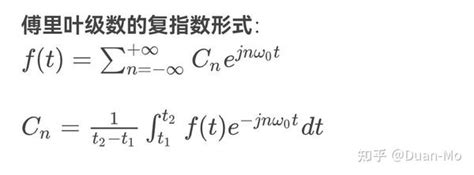 傅里叶级数的复指数形式:
f(t) = ∑_{n=-∞}^{+∞} C_n e^{jnω_0t}
C_n = \frac{1}{t_2-t_1} ∫_{t_1}^{t_2} f(t)e^{-jnω_0t}dt
知乎 @Duan-Mo